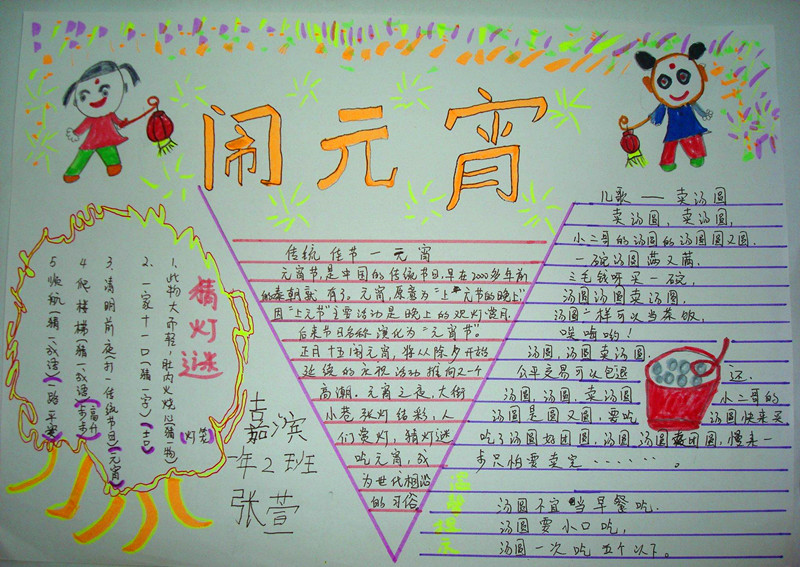 闹元宵
猜灯谜
1、此物大而轻,肚内火烧心(猜一物)(灯笼)
2、一家十一口(猜一字)(吉)
3、清明前夜(打一传统节日)(元宵)
4、爬楼梯(猜一成语)(步步高升)
5、顺航(猜一成语)(一路平安)
嘉滨
一年2班
张萱
传统佳节—元宵
元宵节是中国的传统节日,早在2000多年前
的秦朝就有了。元宵,原意为“上元节的晚上”,
因“上元节”主要活动是晚上的观灯赏月,
后来节日名称演化为“元宵节”。
正月十五闹元宵,将从除夕开始
延续的庆祝活动推向又一个
高潮。元宵之夜,大街
小巷张灯结彩,人
们赏灯,猜灯谜
吃元宵,成
为世代相沿
的习俗。
儿歌——卖汤圆
卖汤圆,卖汤圆,
小二哥的汤圆的汤圆圆又圆.
一碗汤圆满又满,
三毛钱呀买一碗,
汤圆汤圆卖汤圆,
汤圆一样可以当茶饭,
唉嗬哟!
汤圆,汤圆卖汤圆.
公平交易可以包退还.
汤圆,汤圆,卖汤圆 小二哥的
汤圆是圆又圆,要吃 汤圆快来买
吃了汤圆好团圆,汤圆,汤圆 团圆,慢来一
步只怕要卖完………。
温馨提示
汤圆不宜当早餐吃.
汤圆要小口吃,
汤圆一次吃五个以下。